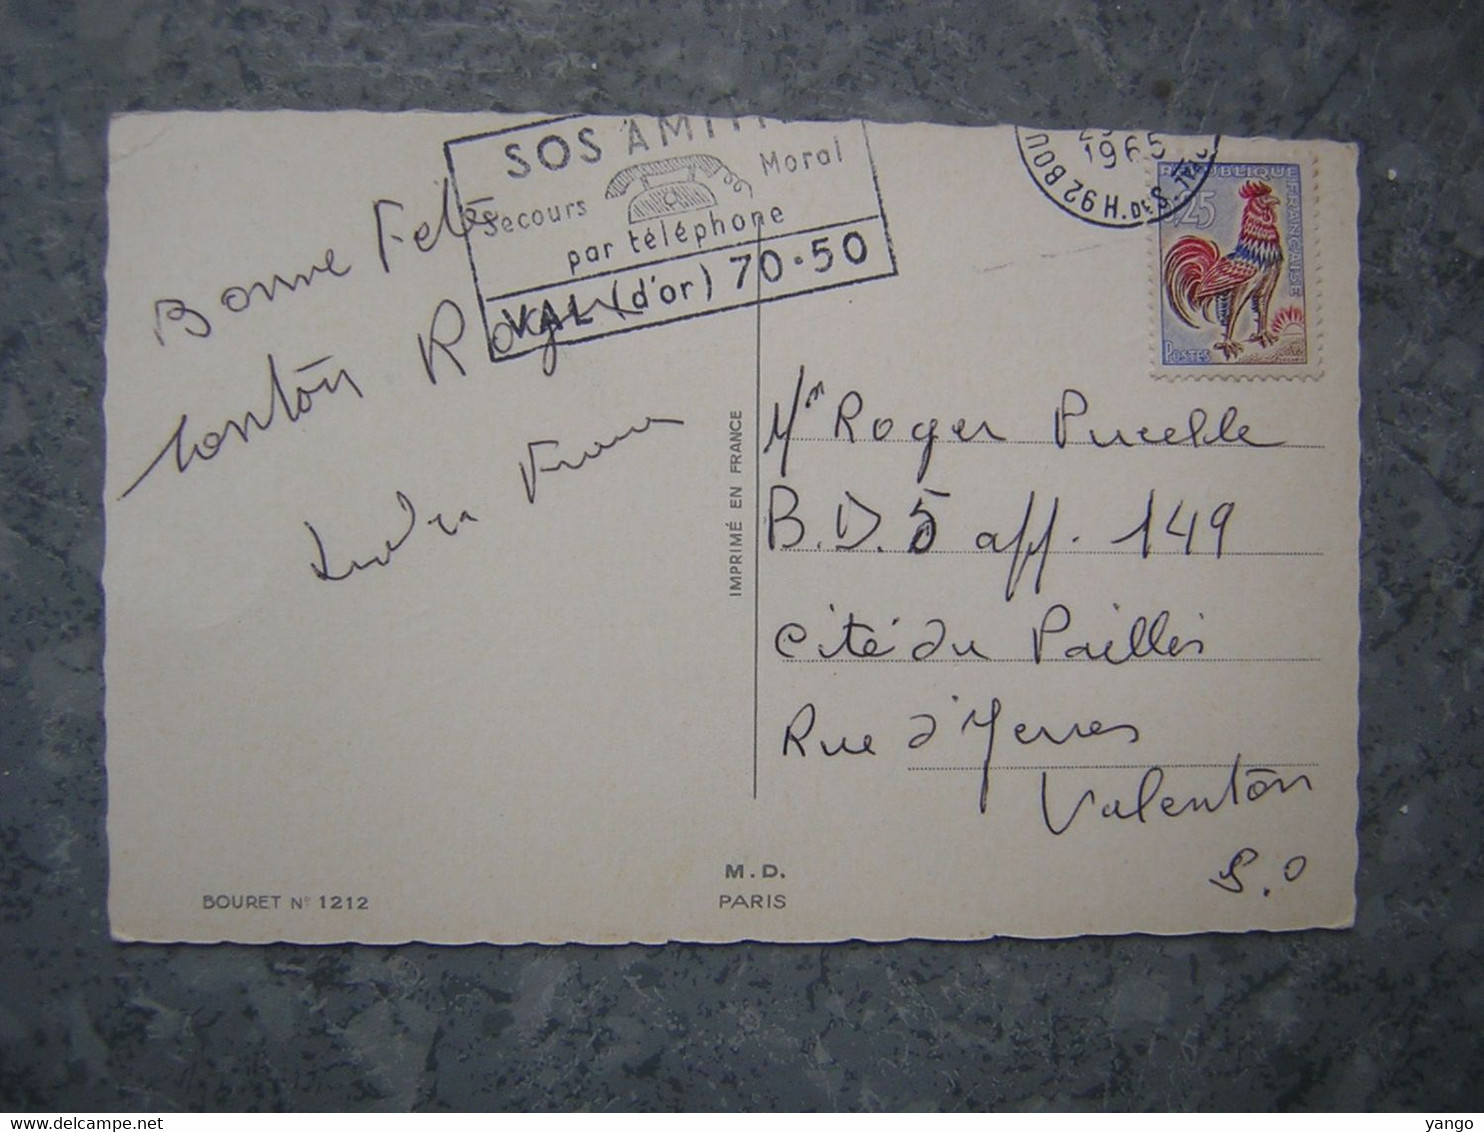 SOS AMITI
Secours Moral
par téléphone
VAL (d'or) 70-50
1965
H 92 BOU
RÉPUBLIQUE FRANÇAISE
0,25
POSTES
Bonne Fete
tonton Roger
IMPRIMÉ EN FRANCE
Mr Roger Pucelle
B.D. 5 aff. 149
Cité du Paillis
Rue d'Yerres
Valenton
S.O
BOURET Nº 1212
M.D.
PARIS
yango
Delcampe.net